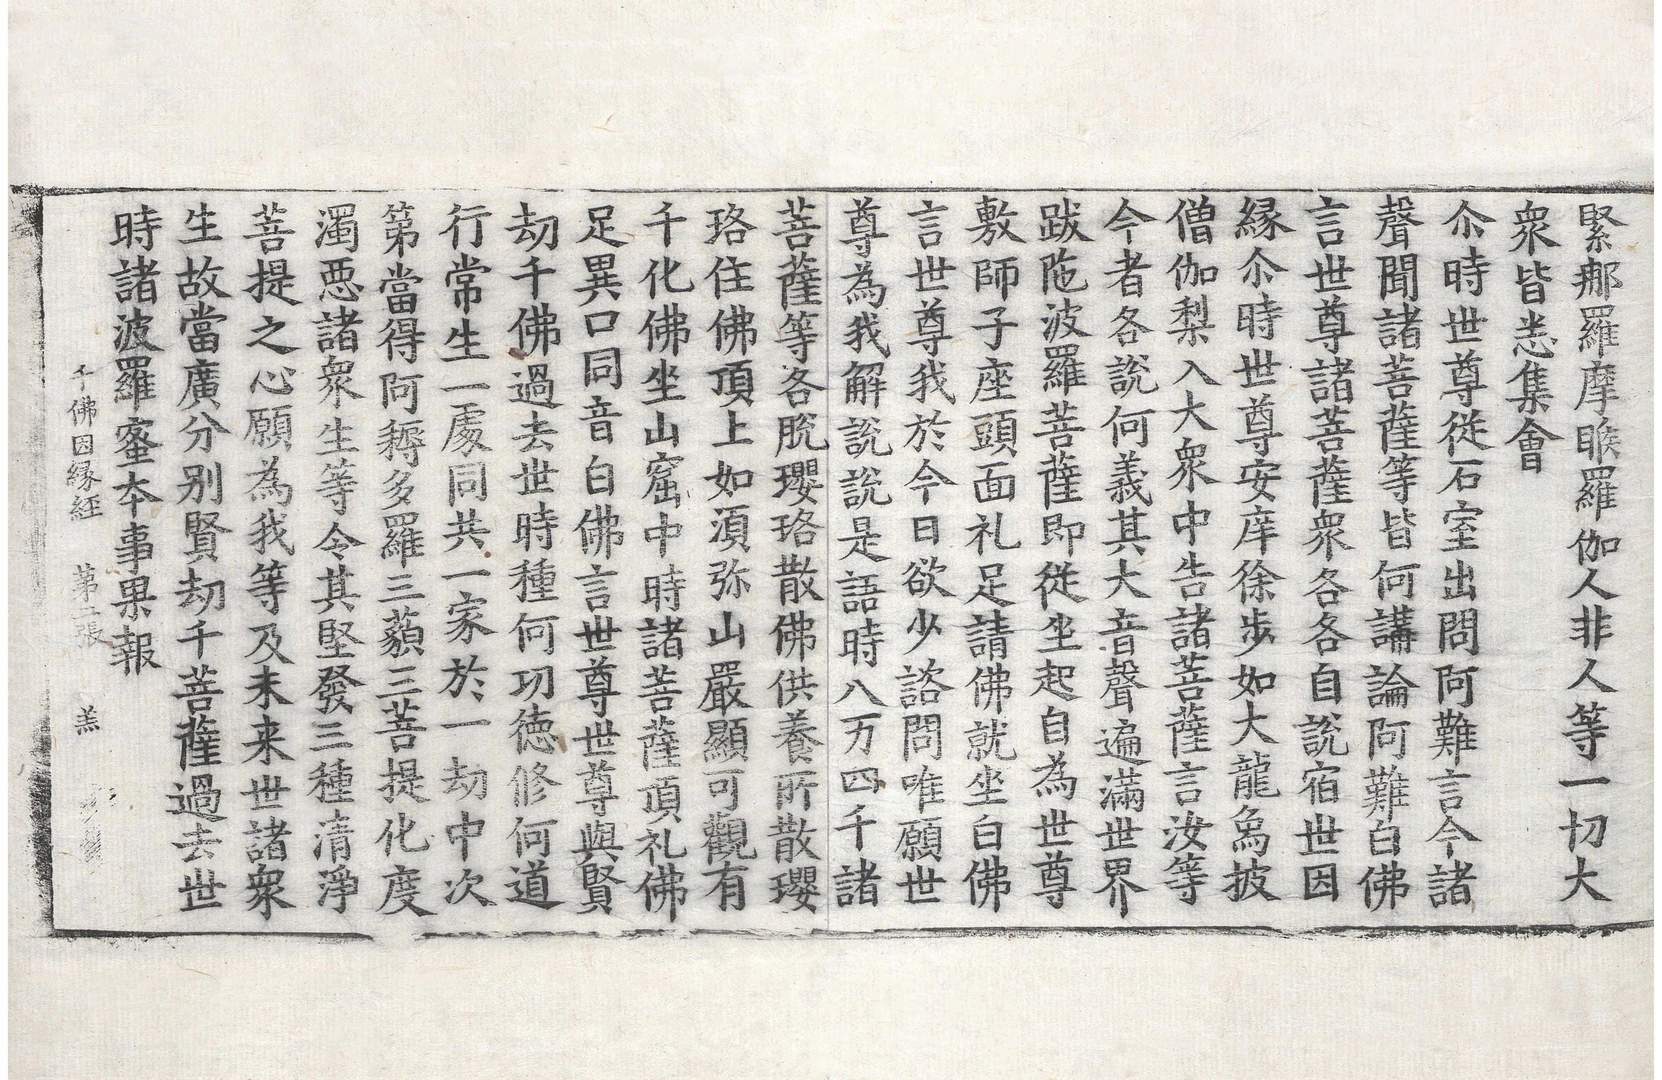 緊那羅摩睺羅伽人非人等一切大
衆皆悉集會
尒時世尊從石室出問阿難言今諸
聲聞諸菩薩等皆何講論阿難白佛
言世尊諸菩薩衆各各自說宿世因
縁尒時世尊安庠徐歩如大龍爲披
僧伽梨入大衆中告諸菩薩言汝等
今者各說何義其大音聲遍滿世界
跋陁波羅菩薩即從坐起自為世尊
敷師子座頭面礼足請佛就坐白佛
言世尊我於今日欲少諮問唯願世
尊為我解說說是語時八万四千諸
菩薩等各脫瓔珞散佛供養所散瓔
珞住佛頂上如湏弥山嚴顯可觀有
千化佛坐山窟中時諸菩薩頂礼佛
足異口同音白佛言世尊世尊與賢
劫千佛過去世時種何功徳修何道
行常生一處同共一家於一劫中次
第當得阿耨多羅三藐三菩提化度
濁惡諸衆生等令其堅發三種清淨
菩提之心願為我等及未来世諸衆
生故當廣分别賢劫千菩薩過去世
時諸波羅蜜本事果報
千佛因縁經 第二張 羔